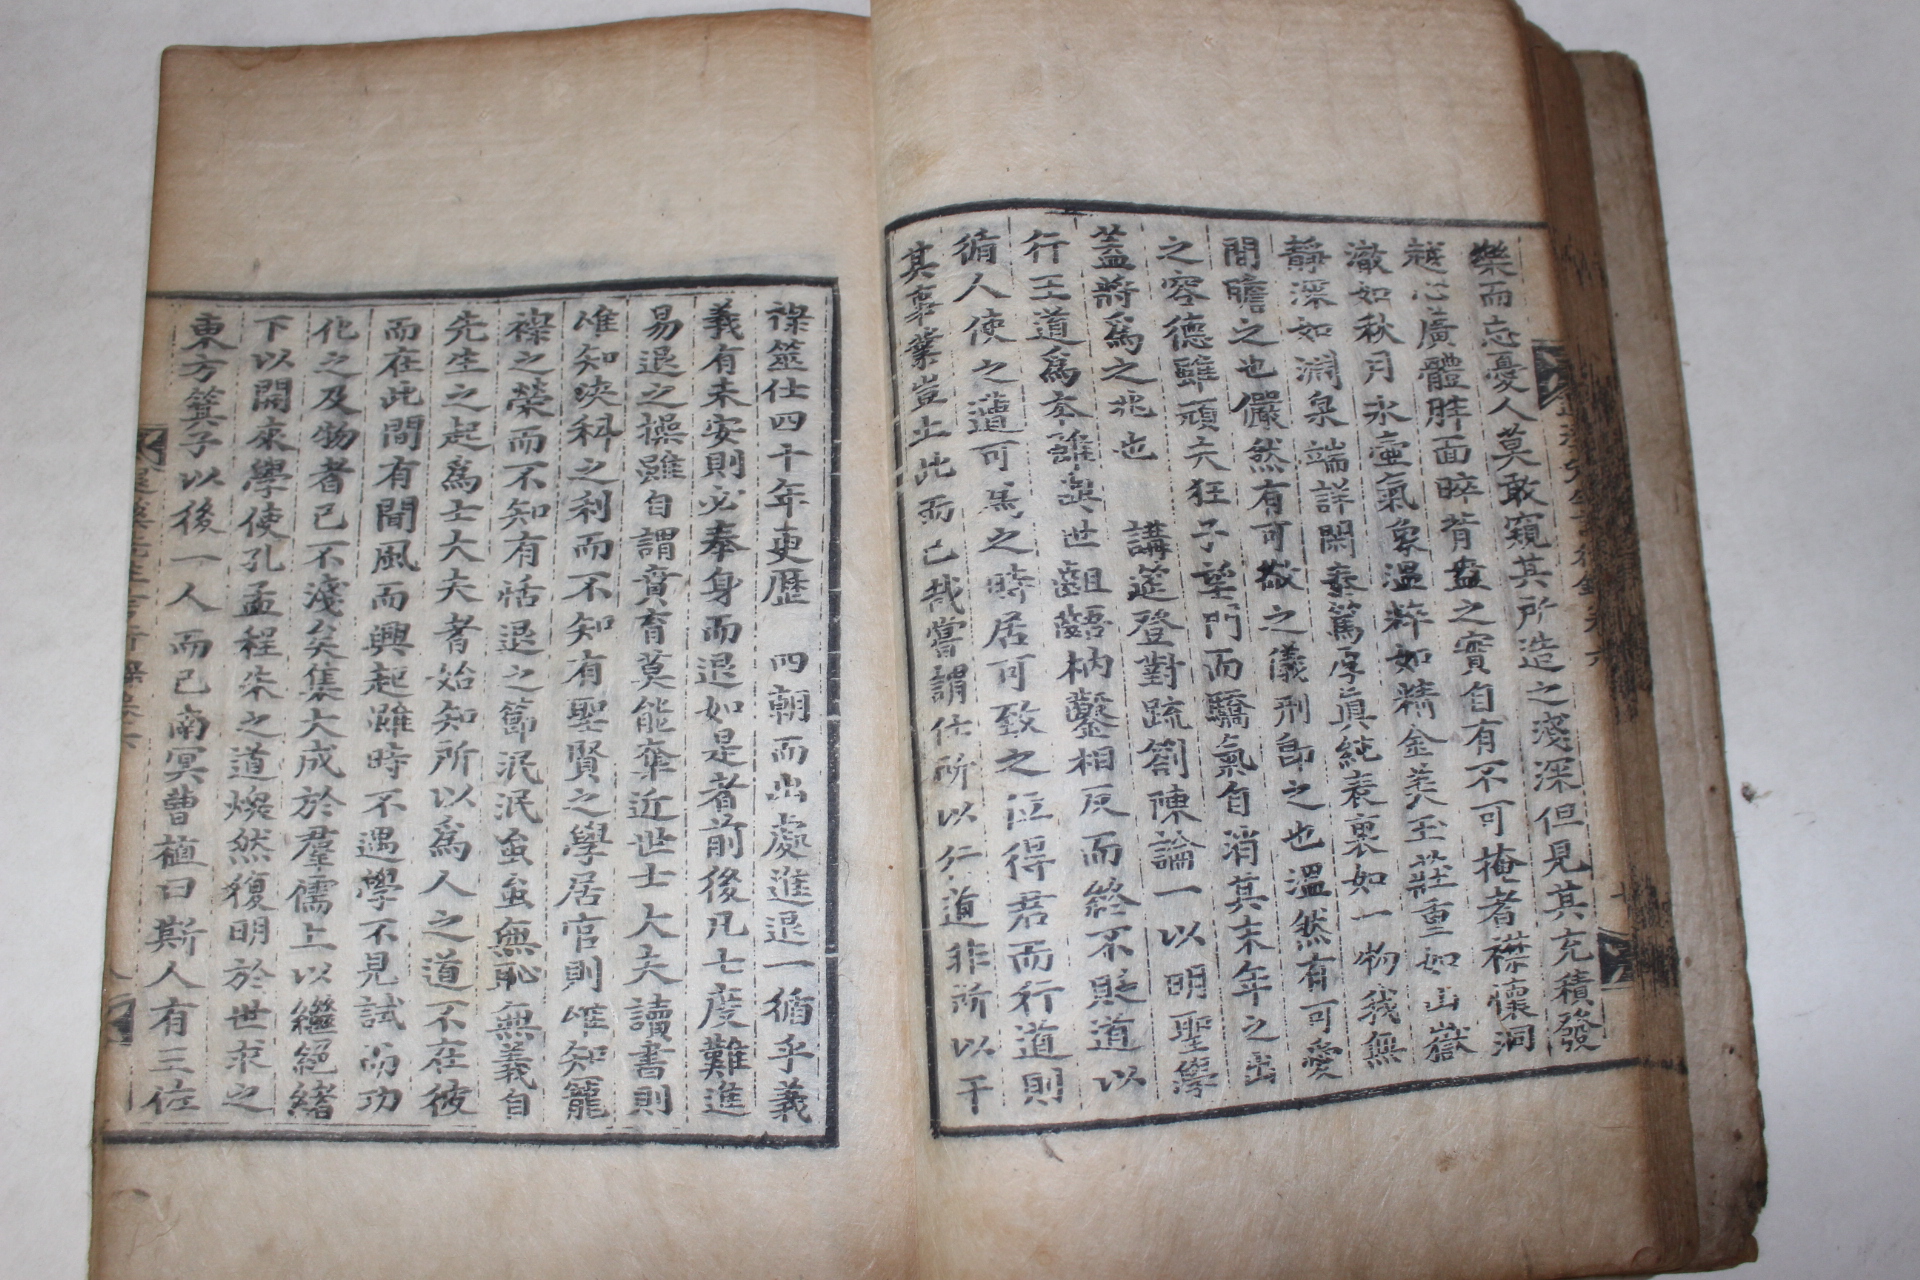 樂而忘憂人莫敢窺其所造之淺深但見其充積發
越心廣體胖面睟背盎之實自有不可掩者襟懷洞
澈如秋月氷壺氣象溫粹如精金美玉莊重如山嶽
靜深如淵泉端詳閑泰篤厚眞純表裏如一物我無
間瞻之也儼然有可敬之儀刑卽之也溫然有可愛
之容德雖頑夫狂子望門而驕氣自消其末年之出
蓋將爲之兆也 講筵登對疏箚陳論一以明聖學
行王道爲本雖與世齟齬枘鑿相反而終不貶道以
循人使之遭可爲之時居可致之位得君而行道則
其事業豈止此而已哉嘗謂仕所以行道非所以干
祿筮仕四十年更歷 四朝而出處進退一循乎義
義有未安則必奉身而退如是者前後凡七度難進
易退之操雖自謂賁育莫能奪近世士大夫讀書則
唯知决科之利而不知有聖賢之學居官則唯知寵
祿之榮而不知有恬退之節泯泯蚩蚩無恥無義自
先生之起爲士大夫者始知所以爲人之道不在彼
而在此間有聞風而興起雖時不遇學不見試而功
化之及物者已不淺矣集大成於羣儒上以繼絕緖
下以開來學使孔孟程朱之道燦然復明於世求之
東方箕子以後一人而已南冥曹植曰斯人有王佐